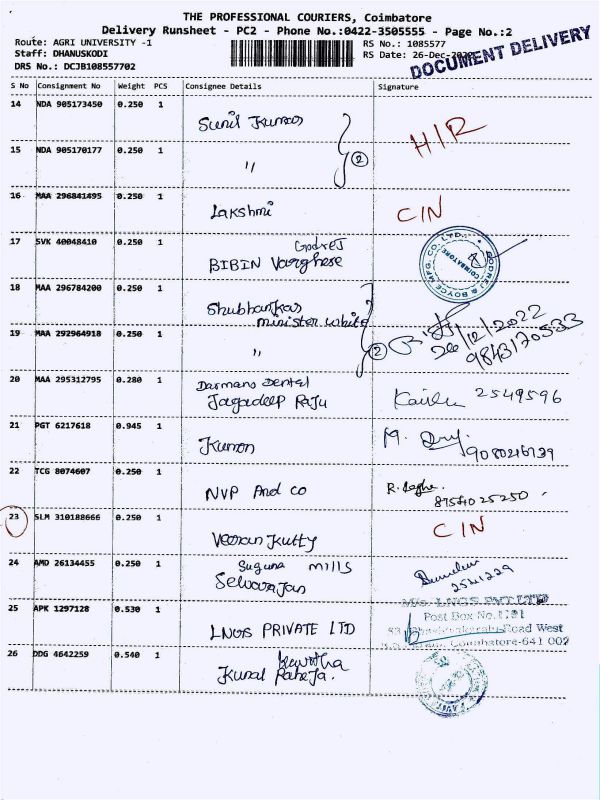 THE PROFESSIONAL COURIERS, Coimbatore
Delivery Runsheet - PC2 - Phone No.:0422-3505555 - Page No.:2
Route: AGRI UNIVERSITY -1
RS No.: 1085577
Staff: DHANUSKODI
RS Date: 26-Dec-2022
DRS No.: DCJB108557702
DOCUMENT DELIVERY
S No Consignment No Weight PCS Consignee Details Signature
14 NDA 905173450 0.250 1 Sunil Kumar
H/R
15 NDA 905170177 0.250 1 " 2
16 MAA 296841495 0.250 1 Lakshmi CIN
17 SVK 40048410 0.250 1 Godrej
BIBIN Varghese
GODREJ & BOYCE MFG. CO. LTD.
COIMBATORE
18 MAA 296784200 0.250 1 Shubhankar
minister white
26/12/2022
19 MAA 292964918 0.250 1 " 2
9843170533
20 MAA 295312795 0.280 1 Darmans Dental
Jagadeep Raju
2549596
21 PGT 6217618 0.945 1 Kumar
M.
22 TCG 8074607 0.250 1 NVP And CO
R.
8754025250
23 SLM 310188666 0.250 1 Veeran Kutty CIN
24 AMD 26134455 0.250 1 Suguna mills
Selvarajan
25 APK 1297128 0.530 1 LNGS PRIVATE LTD
M/s. LNGS PVT LTD
Post Box No.
Road West
Coimbatore-641 002
26 DDG 4642259 0.540 1 Kavitha
Kunal Raheja.